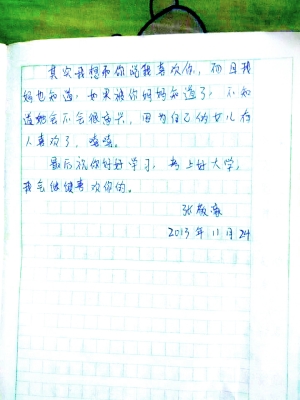 其次我想和你说我喜欢你，而且我
妈也知道，如果被你妈妈知道了，不知
道她会不会很高兴，因为自己的女儿有
人喜欢了，嘻嘻。
最后祝你好好学习，考上好大学，
我会继续喜欢你的。
张敬
2013年11月24